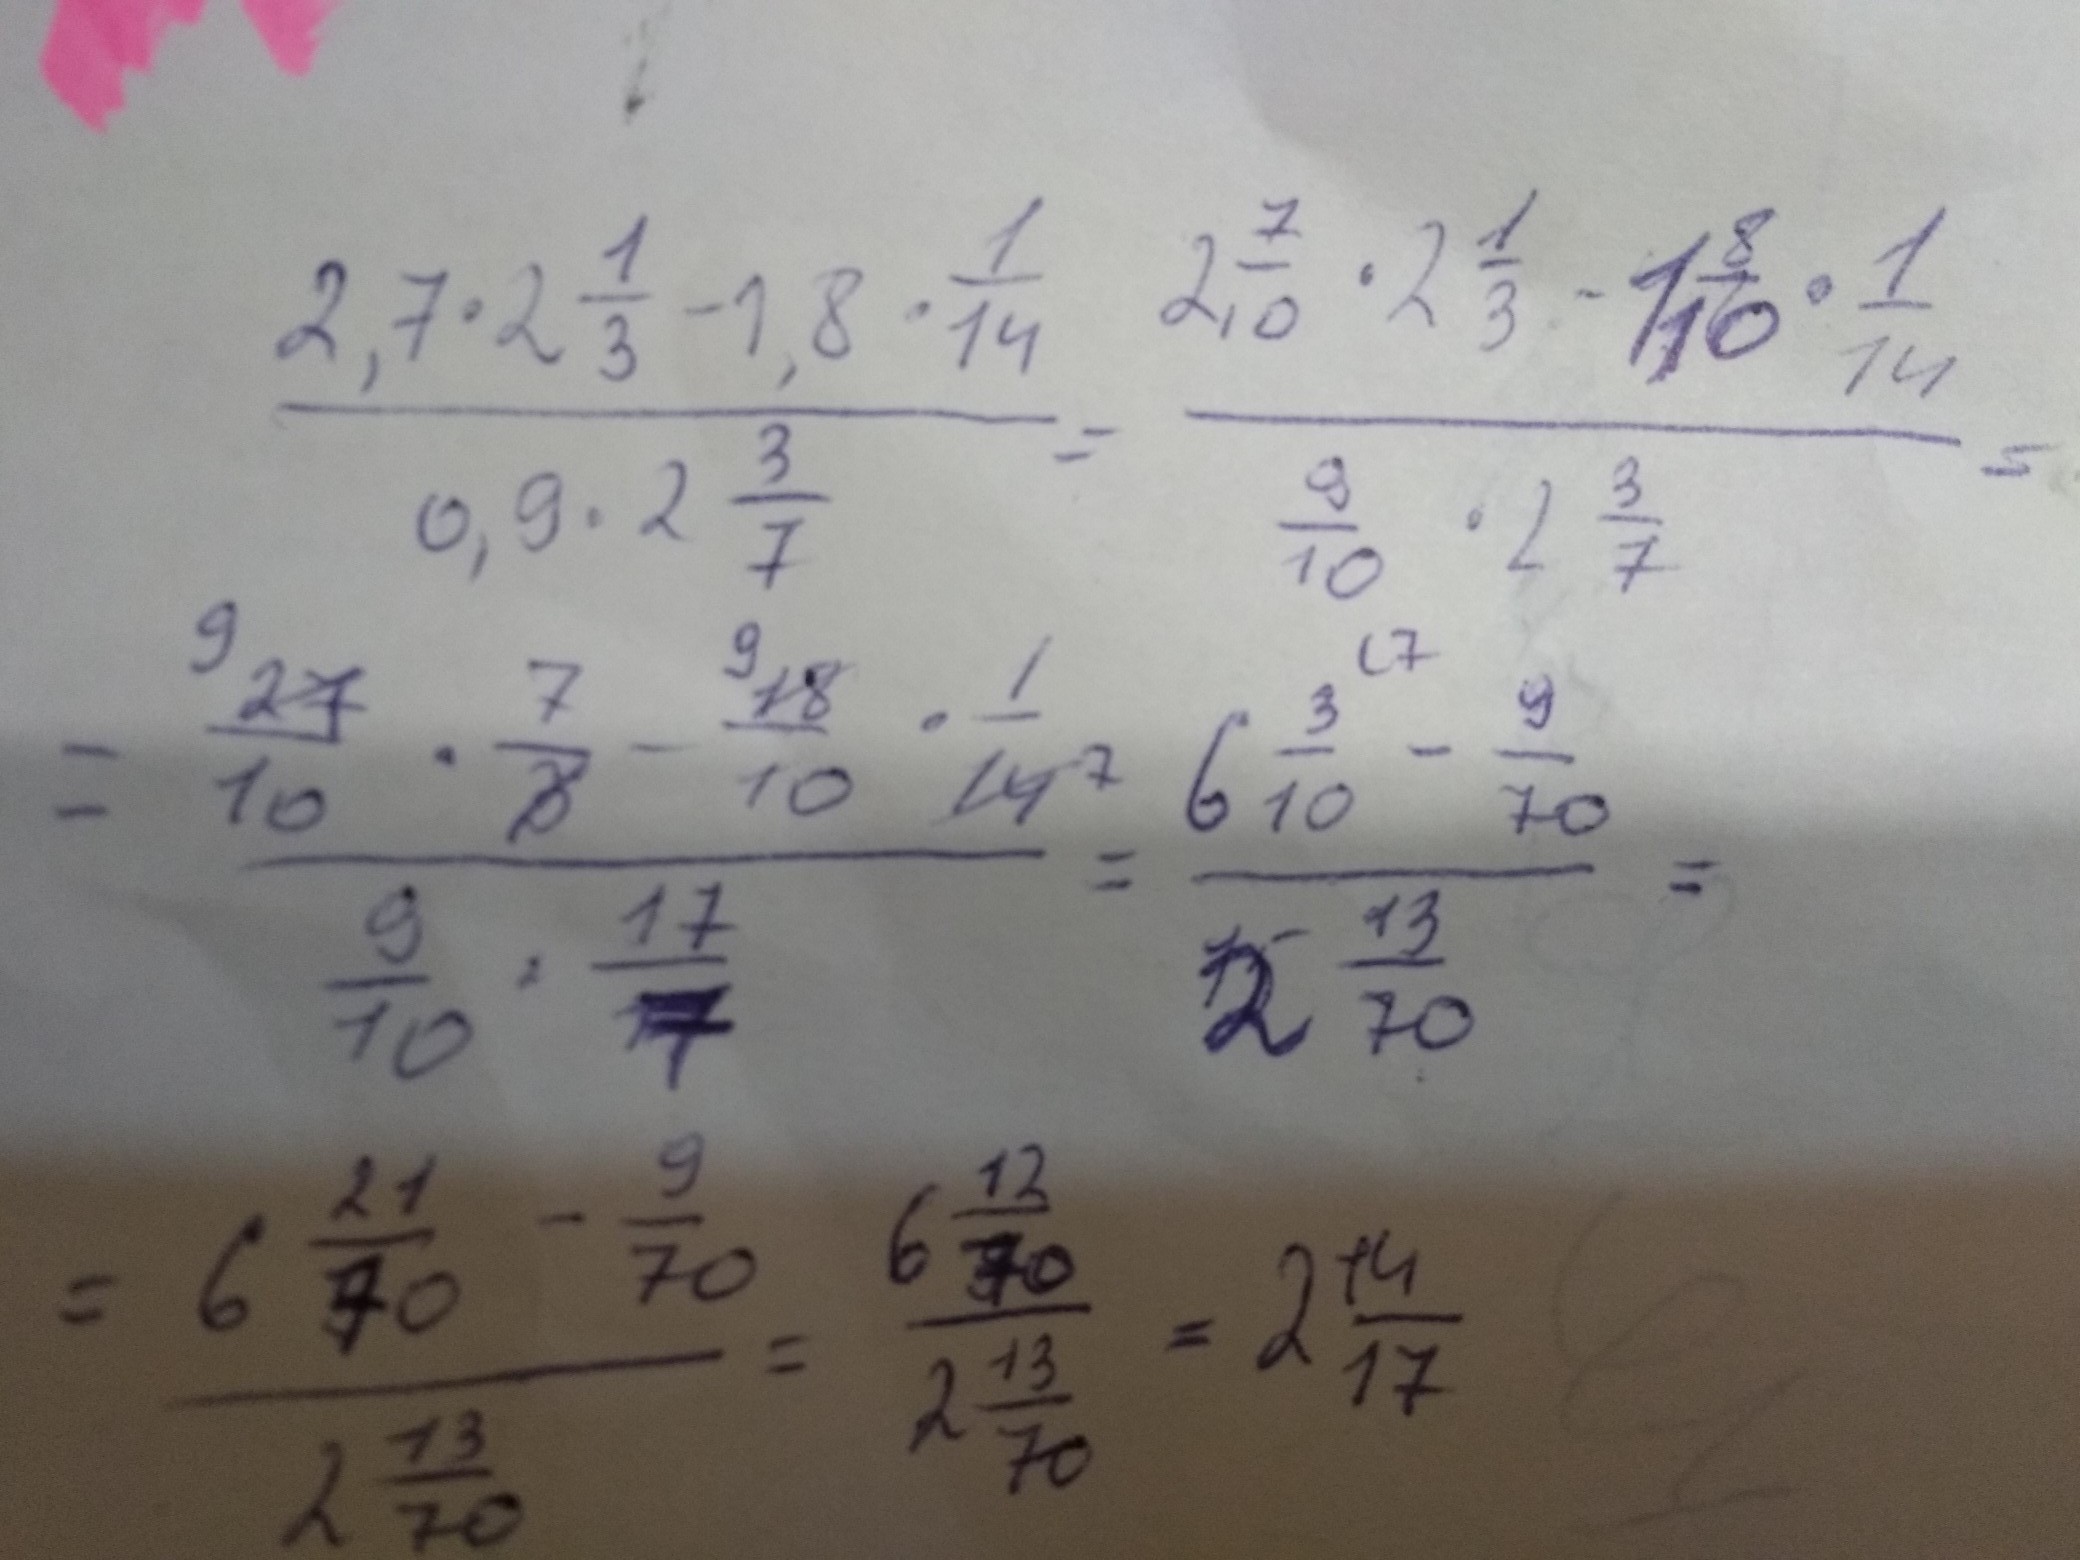 (2,7 · 2 1/3 - 1,8 · 1/14) / (0,9 · 2 3/7) = (2 7/10 · 2 1/3 - 1 8/10 · 1/14) / (9/10 · 2 3/7) =
= (9 27/10 · 7/3 - 9 18/10 · 1/14 7) / (9/10 · 17/7) = (6 3/10 (7 - 9/70) / (2 13/70) =
= (6 21/70 - 9/70) / (2 13/70) = (6 12/70) / (2 13/70) = 2 14/17